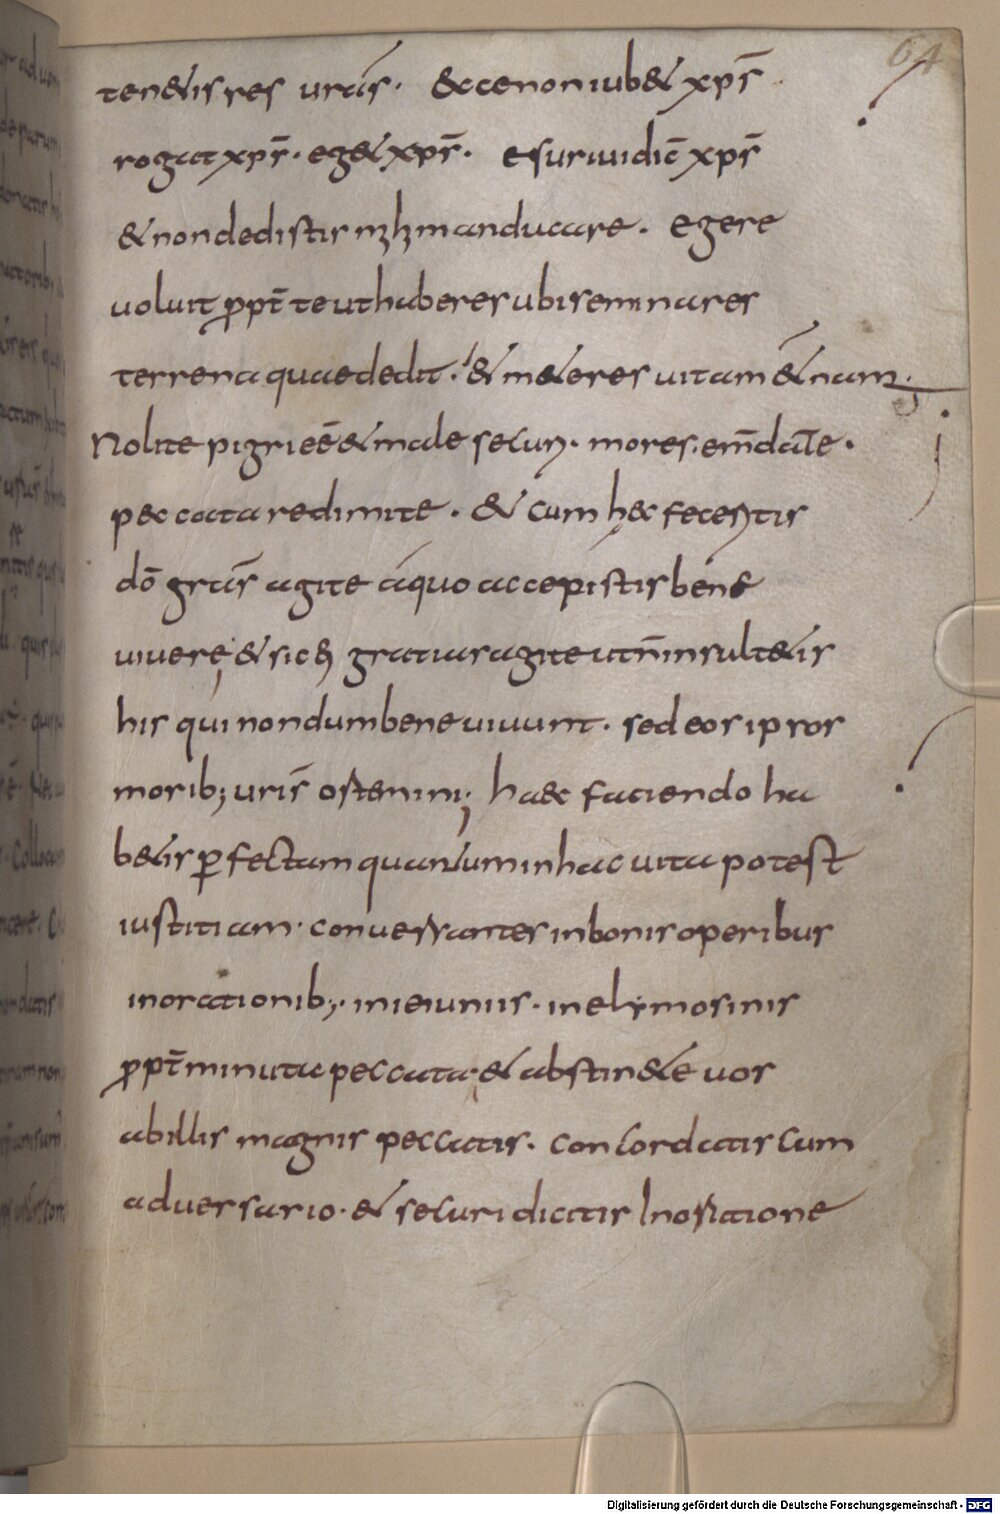 64
ten&is res urãs · & ce non iub& xp̄s
rogat xp̄s · eg& xp̄s · esuriui dic̄ xp̄s
& non dedistis mihi manducare · egere
uoluit ꝓpt̄ te ut haberes ubi seminares
terrena quae dedit · & m&eres uitam &̄nam ·
Nolite pigri eē & male securi · mores · em̄date ·
peccata redimite · & cum hęc feceritis
dō grās agite a quo accepistis bene
uiuere & sic ei gratias agite ut n̄ insult&is
his qui nondum bene uiuunt · sed eos ipsos
morib; ur̄is ostenini; haec faciendo ha
b&is ꝑfectam quantum in hac uita potest
iustitiam · conuersantes in bonis operibus
in orationib; · in ieiuniis · in elymosinis
ꝓpt̄ minuta peccata & abstin&e uos
ab illis magnis peccatis · concordatis cum
aduersario · & securi dicitis In oratione
Digitalisierung gefördert durch die Deutsche Forschungsgemeinschaft - DFG